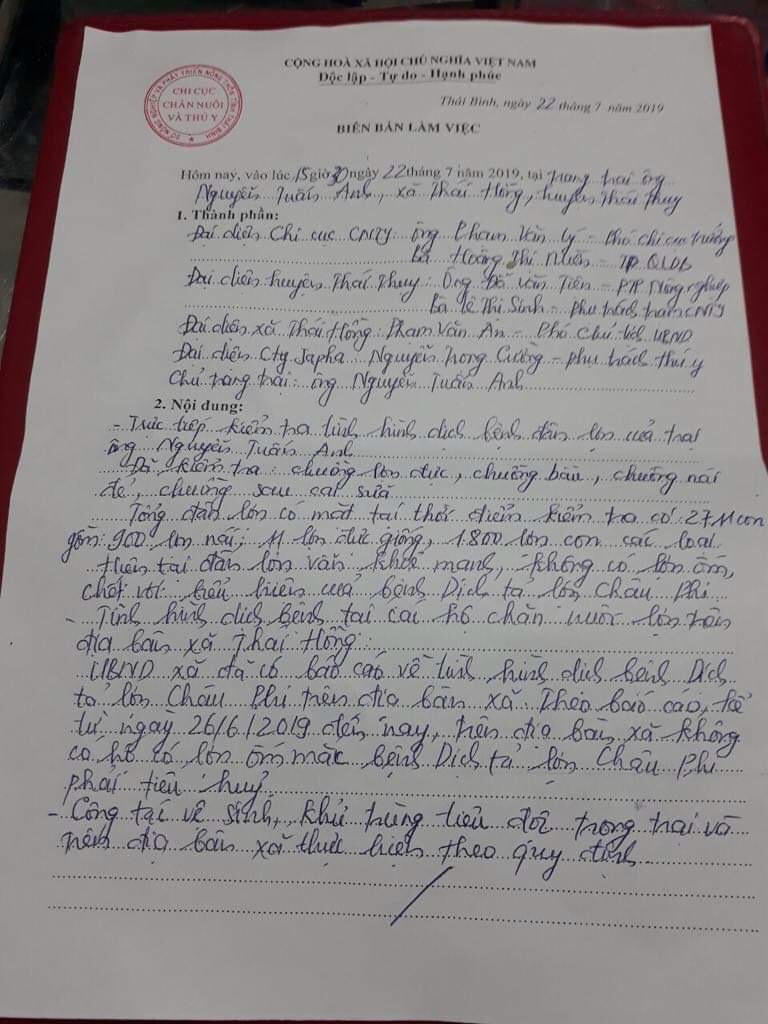 CỘNG HOÀ XÃ HỘI CHỦ NGHĨA VIỆT NAM
Độc lập - Tự do - Hạnh phúc
SỞ NÔNG NGHIỆP VÀ PHÁT TRIỂN NÔNG THÔN TỈNH THÁI BÌNH
CHI CỤC
CHĂN NUÔI
VÀ THÚ Y
Thái Bình, ngày 22 tháng 7 năm 2019
BIÊN BẢN LÀM VIỆC
Hôm nay, vào lúc 15 giờ 30 ngày 22 tháng 7 năm 2019, tại trang trại ông
Nguyễn Tuấn Anh, xã Thái Hồng, huyện Thái Thụy
1. Thành phần:
Đại diện Chi cục CNTY: ông Phạm Văn Lý - Phó chi cục trưởng
Bà Hoàng Thị Nhiên - TP QLDB
Đại diện huyện Thái Thụy: Ông Đỗ Văn Tiên - PTP Nông nghiệp
Bà Lê Thị Sinh - Phụ trách trạm CNTY
Đại diện xã Thái Hồng: Phạm Văn Ân - Phó Chủ tịch UBND
Đại diện Cty Japha: Nguyễn Trọng Cường - phụ trách thú y
Chủ trang trại: ông Nguyễn Tuấn Anh
2. Nội dung:
- Trực tiếp kiểm tra tình hình dịch bệnh đàn lợn của trại
ông Nguyễn Tuấn Anh
Đã kiểm tra: chuồng lợn đực, chuồng bầu, chuồng nái
đẻ, chuồng sau cai sữa
Tổng đàn lợn có mặt tại thời điểm kiểm tra có: 2711 con
gồm: 900 lợn nái; 11 lợn đực giống, 1.800 lợn con các loại
Hiện tại đàn lợn vẫn khoẻ mạnh, không có lợn ốm,
chết với biểu hiện của bệnh Dịch tả lợn Châu Phi
- Tình hình dịch bệnh tại các hộ chăn nuôi lợn trên
địa bàn xã Thái Hồng:
UBND xã đã có báo cáo về tình hình dịch bệnh Dịch
tả lợn Châu Phi trên địa bàn xã. Theo báo cáo, kể
từ ngày 26/6/2019 đến nay, trên địa bàn xã không
có hộ có lợn ốm mắc bệnh Dịch tả lợn Châu Phi
phải tiêu huỷ
- Công tác vệ sinh, khử trùng tiêu độc trong trại và
trên địa bàn xã thực hiện theo quy định